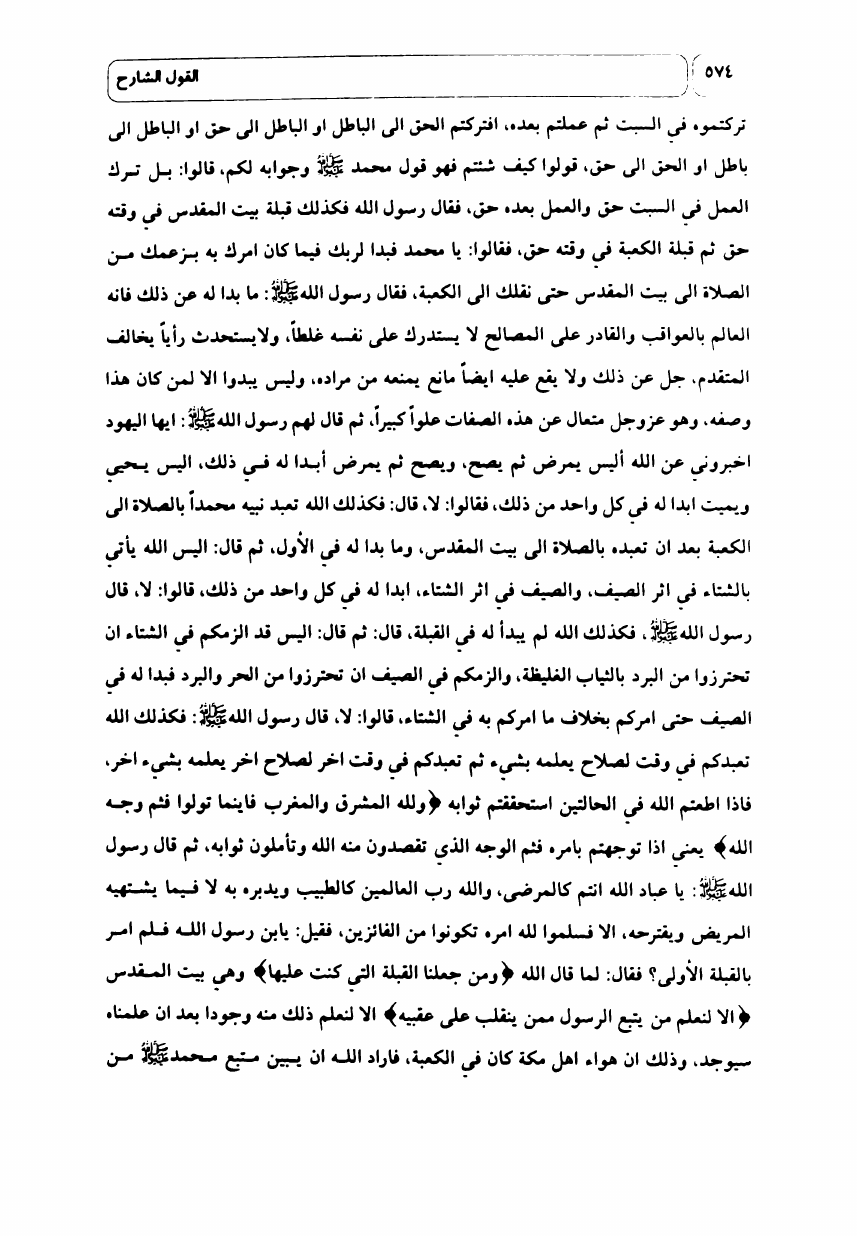 ٥٧٤ القول الشارح
تركتموه في السبت ثم عملتم بعده، افتركتم الحق الى الباطل او الباطل الى حق او الباطل الى
باطل او الحق الى حق، قولوا كيف شئتم فهو قول محمد ﷺ وجوابه لكم، قالوا: بل ترك
العمل في السبت حق والعمل بعده حق، فقال رسول الله فكذلك قبلة بيت المقدس في وقته
حق ثم قبلة الكعبة في وقته حق، فقالوا: يا محمد فبدا لربك فيما كان امرك به بزعمك من
الصلاة الى بيت المقدس حتى نقلك الى الكعبة، فقال رسول الله ﷺ: ما بدا له عن ذلك فانه
العالم بالعواقب والقادر على المصالح لا يستدرك على نفسه غلطاً، ولايستحدث رأياً يخالف
المتقدم، جل عن ذلك ولا يقع عليه ايضاً مانع يمنعه من مراده، وليس يبدوا الا لمن كان هذا
وصفه، وهو عزوجل متعال عن هذه الصفات علواً كبيراً، ثم قال لهم رسول الله ﷺ: ايها اليهود
اخبروني عن الله أليس يمرض ثم يصح، ويصح ثم يمرض أبدا له في ذلك، اليس يحيي
ويميت ابدا له في كل واحد من ذلك، فقالوا: لا، قال: فكذلك الله تعبد نبيه محمداً بالصلاة الى
الكعبة بعد ان تعبده بالصلاة الى بيت المقدس، وما بدا له في الأول، ثم قال: اليس الله يأتي
بالشتاء في اثر الصيف، والصيف في اثر الشتاء، ابدا له في كل واحد من ذلك، قالوا: لا، قال
رسول الله ﷺ، فكذلك الله لم يبدأ له في القبلة، قال: ثم قال: اليس قد الزمكم في الشتاء ان
تحترزوا من البرد بالثياب الغليظة، والزمكم في الصيف ان تحترزوا من الحر والبرد فبدا له في
الصيف حتى امركم بخلاف ما امركم به في الشتاء، قالوا: لا، قال رسول الله ﷺ: فكذلك الله
تعبدكم في وقت لصلاح يعلمه بشيء ثم تعبدكم في وقت اخر لصلاح اخر يعلمه بشيء اخر،
فاذا اطعتم الله في الحالتين استحققتم ثوابه ﴿ولله المشرق والمغرب فاينما تولوا فثم وجه
الله﴾ يعني اذا توجهتم بامره فثم الوجه الذي تقصدون منه الله وتأملون ثوابه، ثم قال رسول
الله ﷺ: يا عباد الله انتم كالمرضى، والله رب العالمين كالطبيب ويدبره به لا فيما يشتهيه
المريض ويقترحه، الا فسلموا لله امره تكونوا من الفائزين، فقيل: يابن رسول الله فلم امر
بالقبلة الأولى؟ فقال: لما قال الله ﴿ومن جعلنا القبلة التي كنت عليها﴾ وهي بيت المقدس
﴿الا لنعلم من يتبع الرسول ممن ينقلب على عقبيه﴾ الا لنعلم ذلك منه وجودا بعد ان علمناه
سيوجد، وذلك ان هواء اهل مكة كان في الكعبة، فاراد الله ان يبين متبع محمد ﷺ من